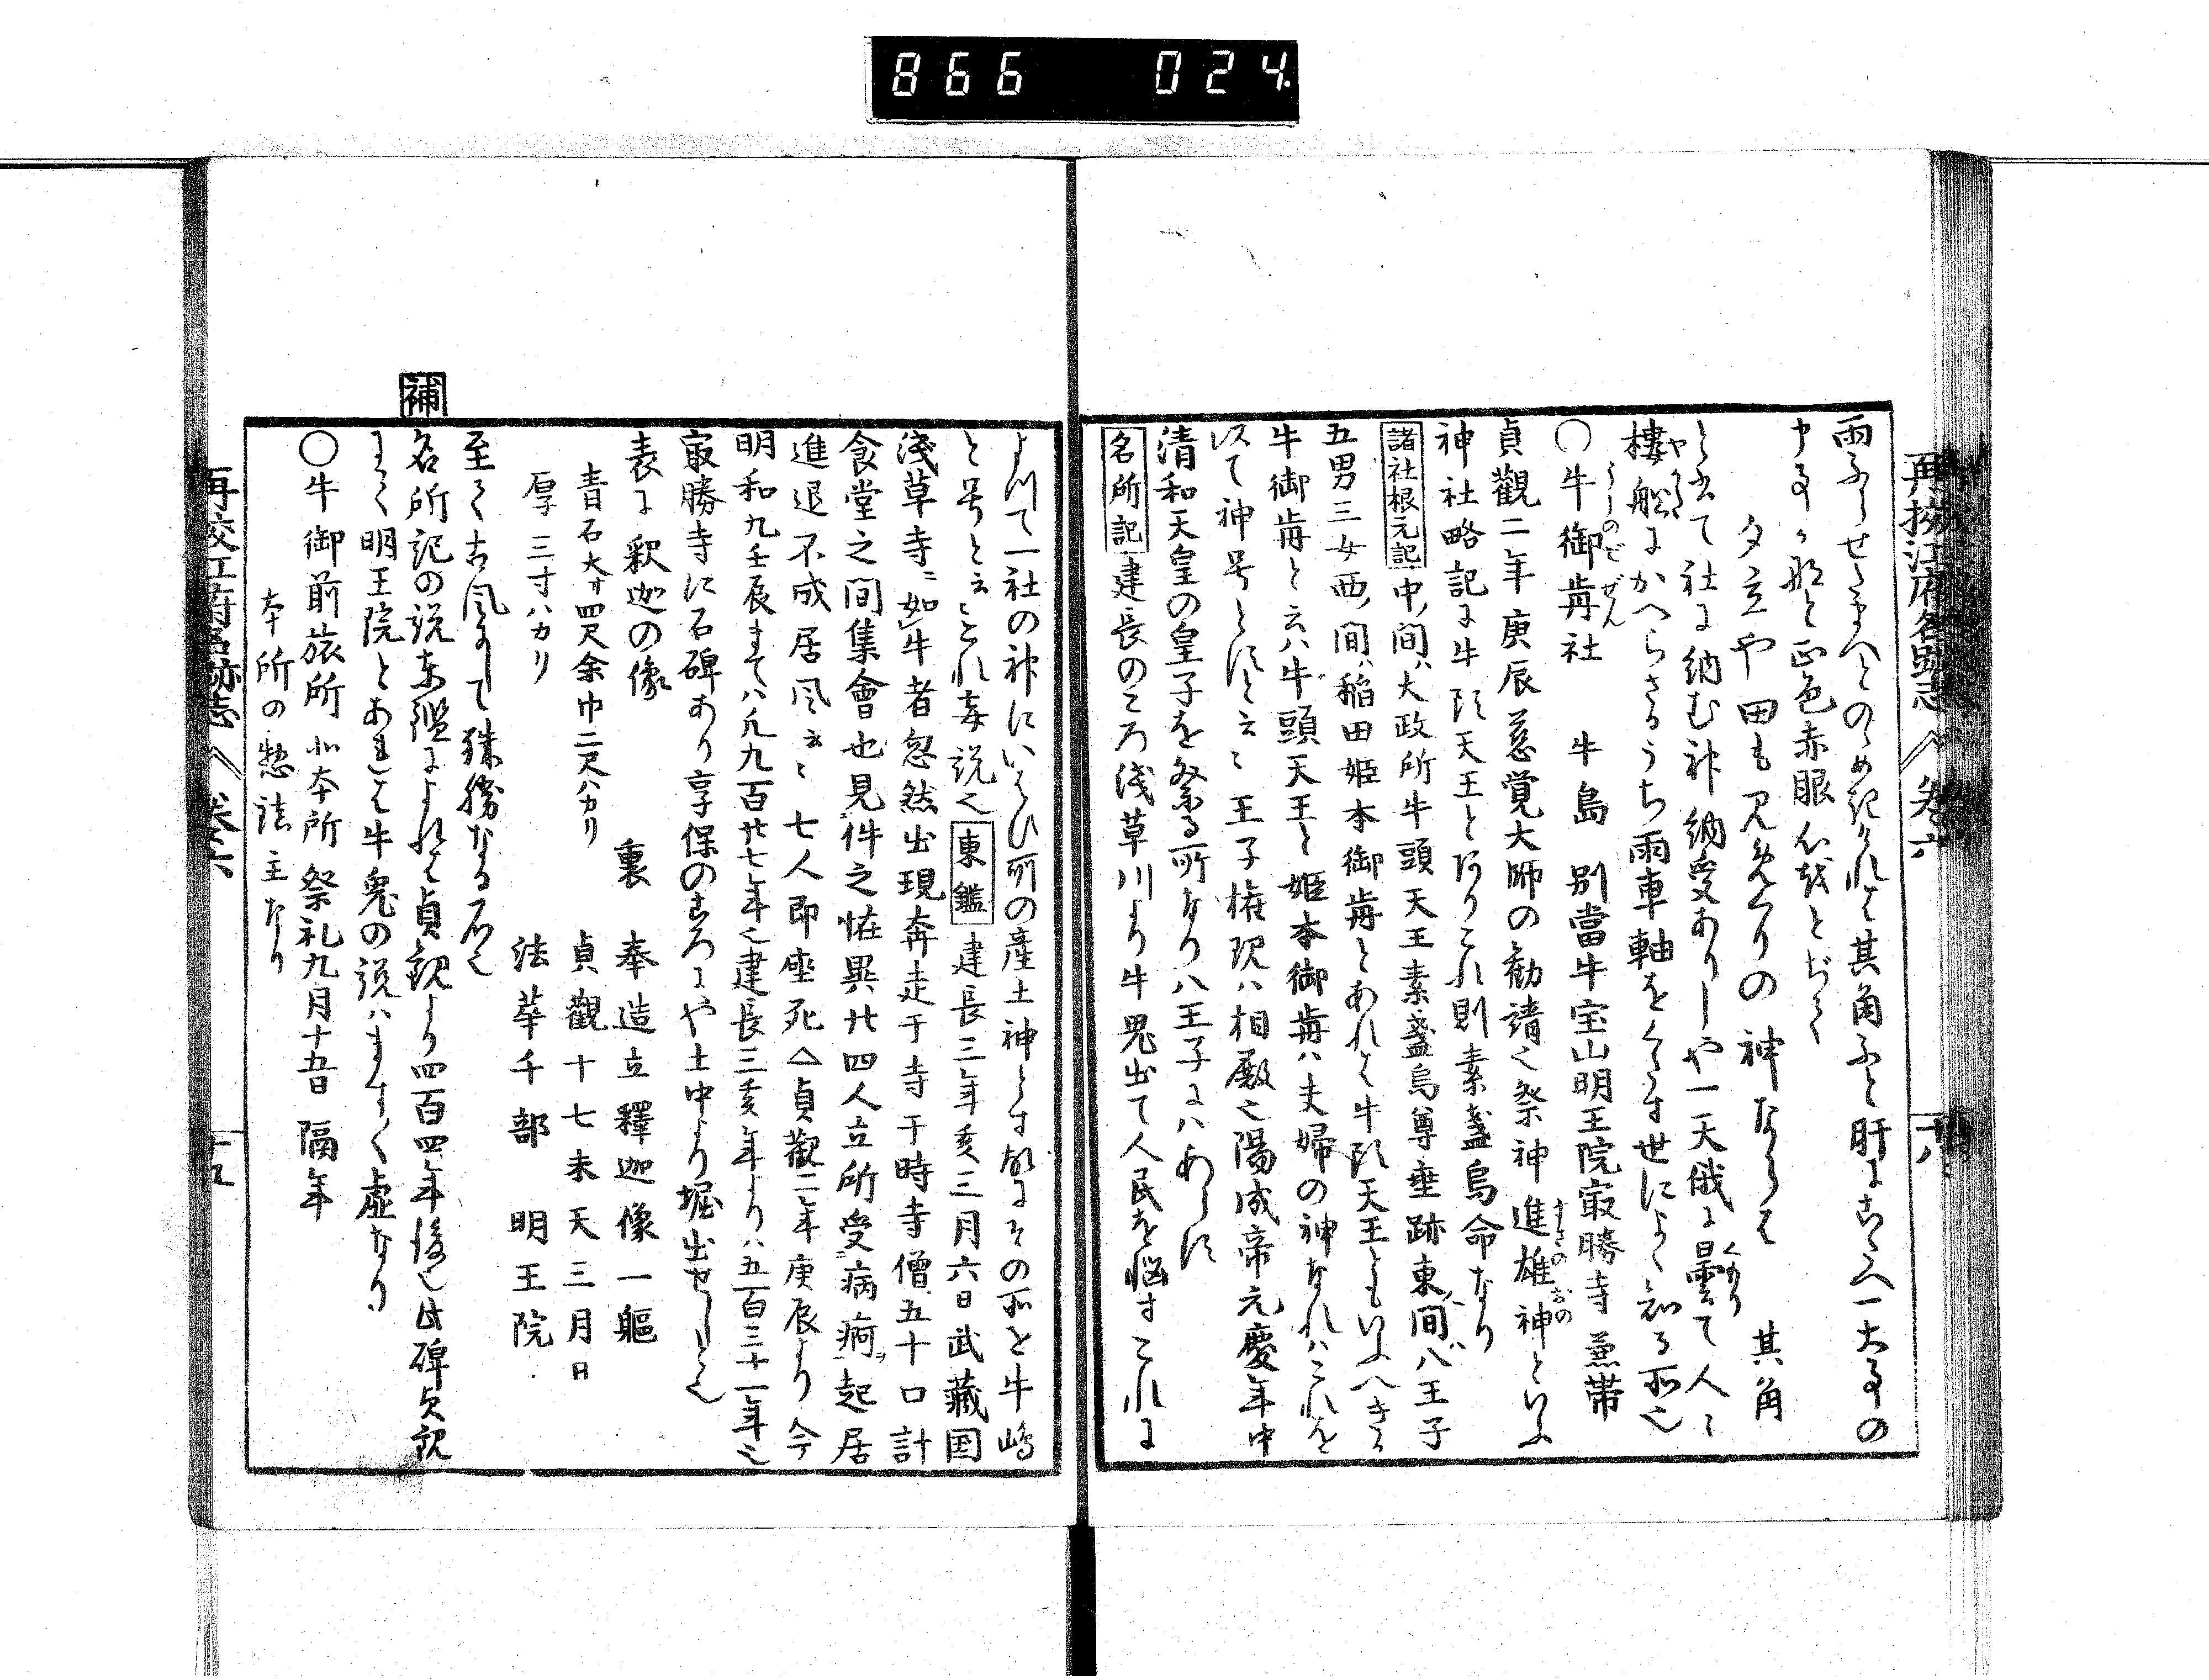 866 024.
再校江府名跡志 巻六
雨ふらせたまへとのゝめきけれは其角ふと肝にこたへ一大事の
申事かなと正色赤眼心ををとぢて
夕立や田も見めくりの神ならは 其角
と云て社に納む神納受ありしや一天俄に曇て人々
くもり
やかた
樓舩にかへらさるうち雨車軸をくたす世によく知る所也
うしのごぜん
〇牛御歬社 牛島 別當牛宝山明王院㝡勝寺 兼帯
貞觀二年庚辰慈覚大師の勧請也祭神進雄神といふ
すさのおの
神社略記に牛頭天王とありこれ則素盞烏命なり
諸社根元記 中ノ間ハ大政所牛頭天王素盞烏尊垂跡東ノ間ハ八王子
五男三女西ノ間ハ稲田姫本御歬とあれは牛頭天王ともいふへきを
牛御歬と云ハ牛頭天王と姫本御歬ハ夫婦の神なれハこれを
以て神号とすと云々王子権現ハ相殿也陽成帝元慶年中
清和天皇の皇子を祭る所なり八王子にハあらす
名所記 建長のころ浅草川より牛鬼出て人民を悩すこれに
よつて一社の神にいはひ所の産土神とす故にその所を牛嶋
と号と云々これ妄説也 東鑑 建長三年亥三月六日武藏国
淺草寺ニ如牛者忽然出現奔走于寺于時寺僧五十口計
食堂之間集會也見件之恠異廿四人立所受病痾起居
進退不成居風云々七人即座死△貞觀二年庚辰より今
明和九壬辰まてハ凡九百廿七年也建長三亥年よりハ五百三十一年也
㝡勝寺に石碑あり享保のころにや土中より堀出せしと也
表に釈迦の像 裏 奉造立釋迦像一軀
青石大サ四尺余巾二尺ハカリ 貞觀十七未天三月日
厚三寸ハカリ 法華千部 明王院
至て古風にして殊勝なる石也
補
名所記の説東鑑によれは貞観より四百四年後也此碑貞観
にして明王院とあれは牛鬼の説ハますく虚なり
〇牛御前旅所 北本所 祭礼九月十五日 隔年
本所の惣法主なり
再校江府名跡志 巻六 十五